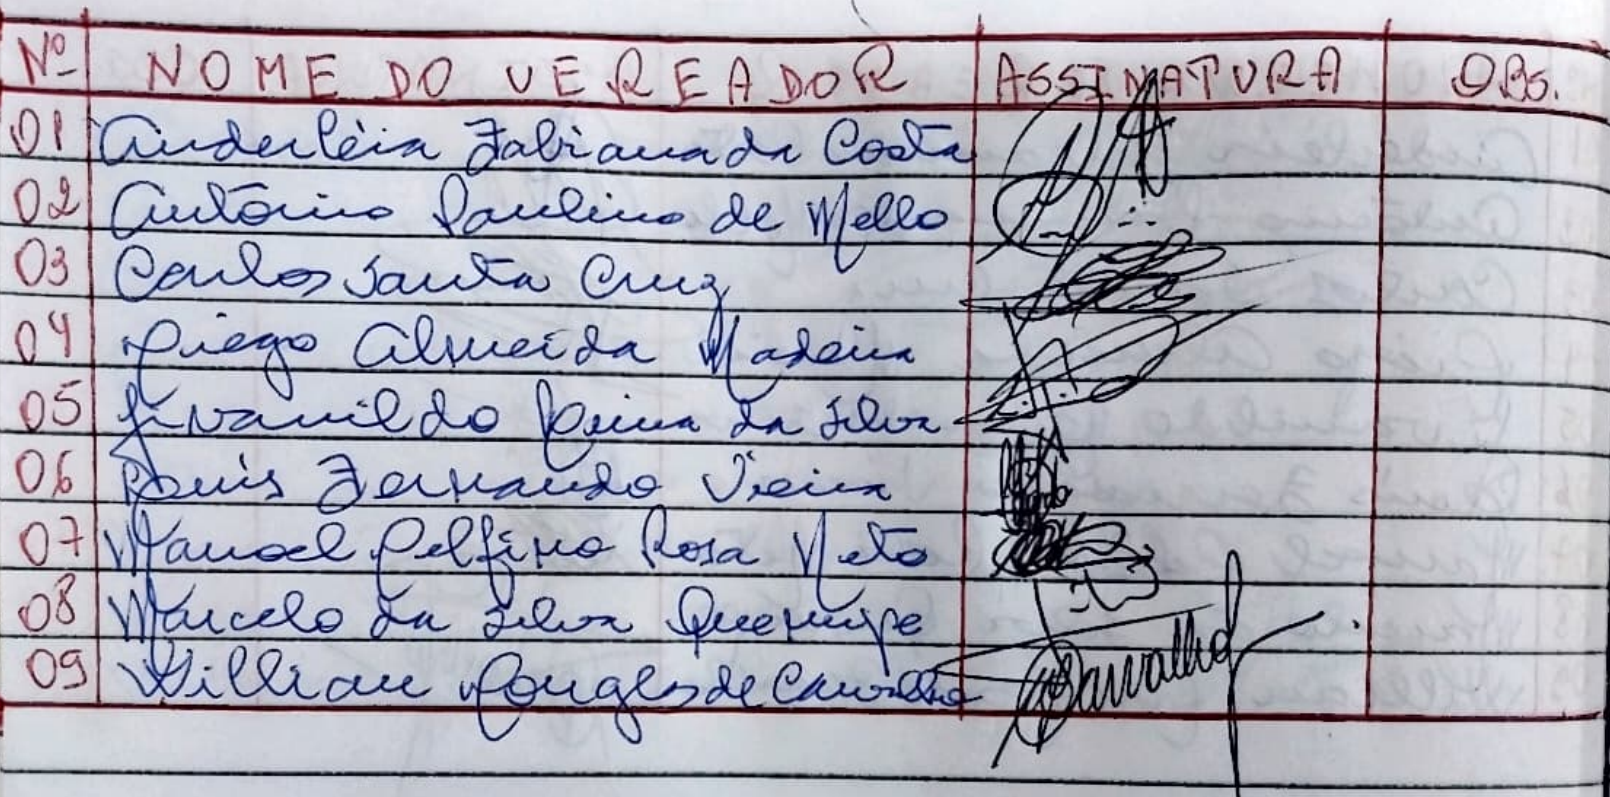 Nº NOME DO VEREADOR ASSINATURA OBS.
01 Anderléia Fabiana da Costa
02 Antônio Paulino de Mello
03 Carlos Santa Cruz
04 Diego Almeida Madeira
05 Givanildo Vieira da Silva
06 Luis Fernando Vieira
07 Manoel Delfino Rosa Neto
08 Marcelo da Silva
09 Willian Douglas de Carvalho Carvalho